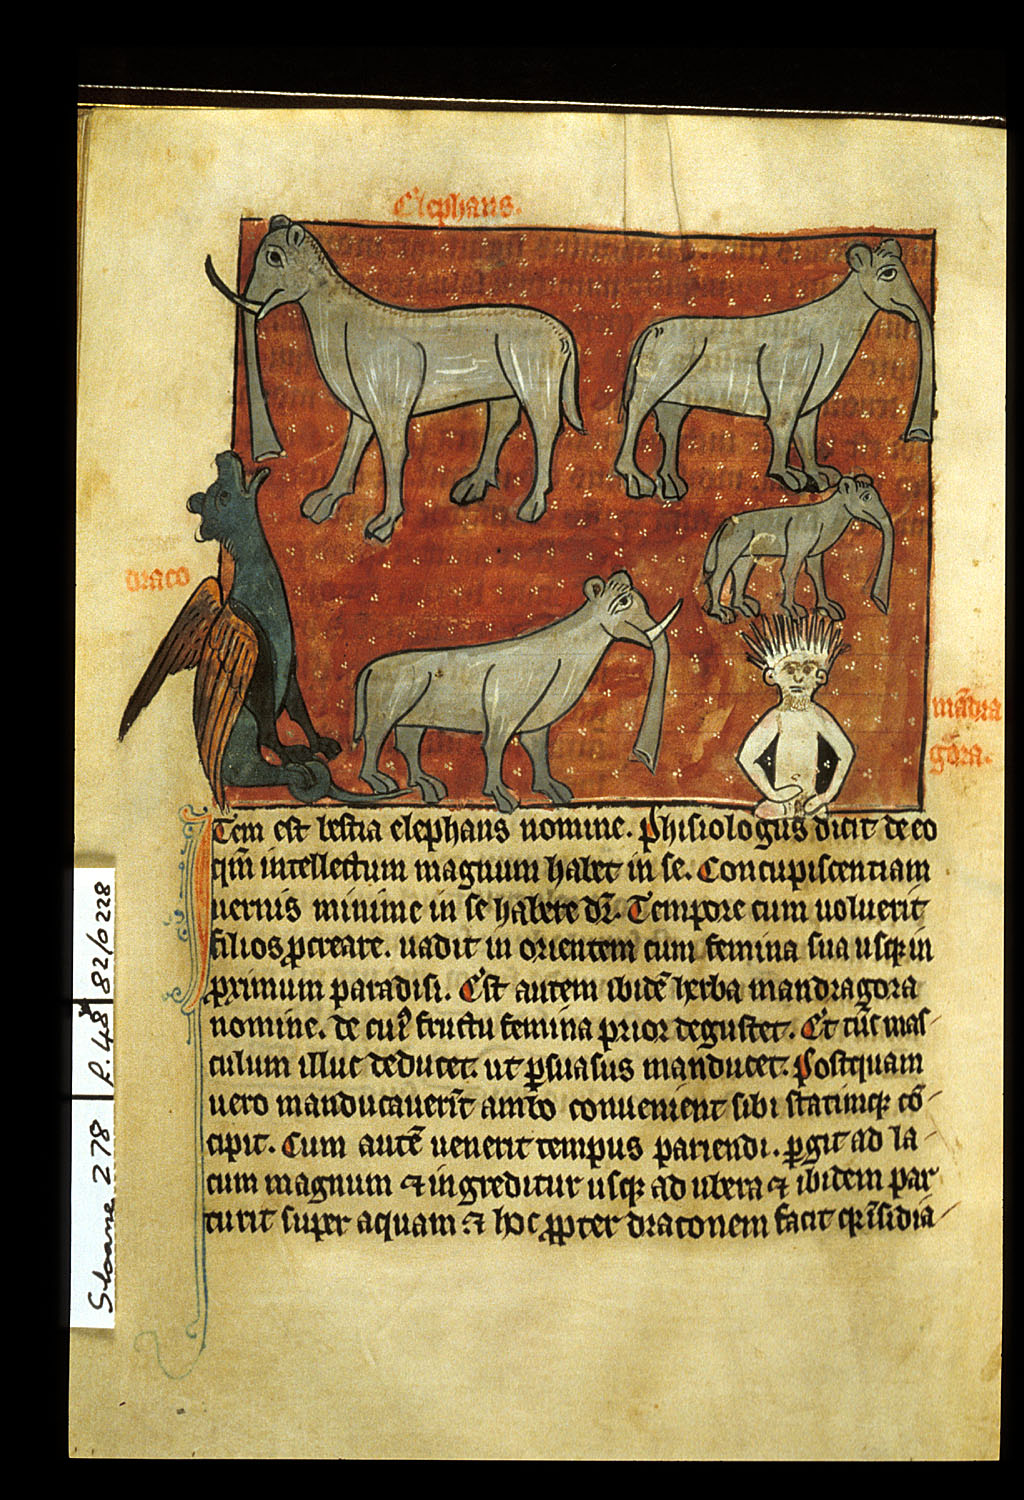 Elephans.
draco
mādra
gora.
Item est bestia elephans nomine. Phisiologus dicit de eo
qm̄ intellectum magnum habet in se. Concupiscentiam
uernis minime in se habere dr̄. Tempore cum uoluerit
filios ꝓcreare. uadit in orientem cum femina sua usqꝫ in
ꝓximum paradisi. Est autem ibidē herba mandragora
nomine. de cuiꝰ fructu femina prior degustet. Et tūc mas-
culum illuc deducet. ut ꝑsuasus manducet. Postquam
uero manducauerīt ambo conuenient sibi statimqꝫ cō-
cipit. Cum autē uenerit tempus pariendi. ꝑgit ad la-
cum magnum ⁊ ingreditur usqꝫ ad ubera ⁊ ibidem par-
turit super aquam ⁊ hoc ꝓpter draconem facit qꝛ īsidia-
Sloane 278 R.48 82/0228